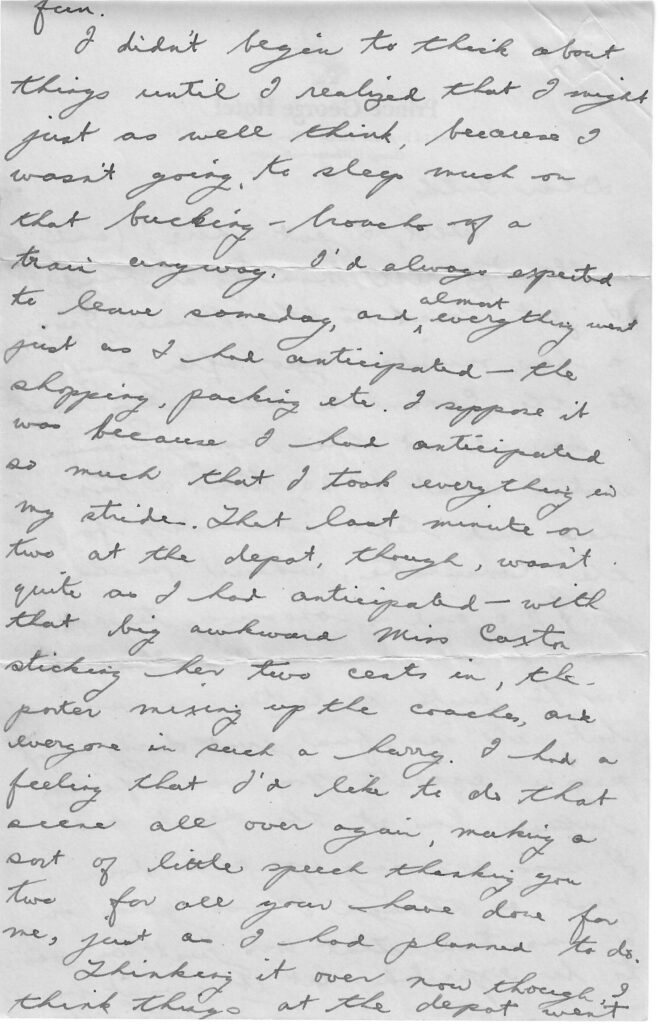 fun.
I didn't begin to think about
things until I realized that I might
just as well think, because I
wasn't going, to sleep much on
that bucking-broncho of a
train anyway. I'd always expected
to leave someday, and almost everything went
just as I had anticipated — the
shopping, packing etc. I suppose it
was because I had anticipated
so much that I took everything in
my stride. That last minute or
two at the depot, though, wasn't
quite as I had anticipated — with
that big awkward Miss Caxton
sticking her two cents in, the
porter mixing up the coaches, and
everyone in such a hurry. I had a
feeling that I'd like to do that
scene all over again, making a
sort of little speech thanking you
two for all your have done for
me, just as I had planned to do.
Thinking it over now though, I
think things at the depot went